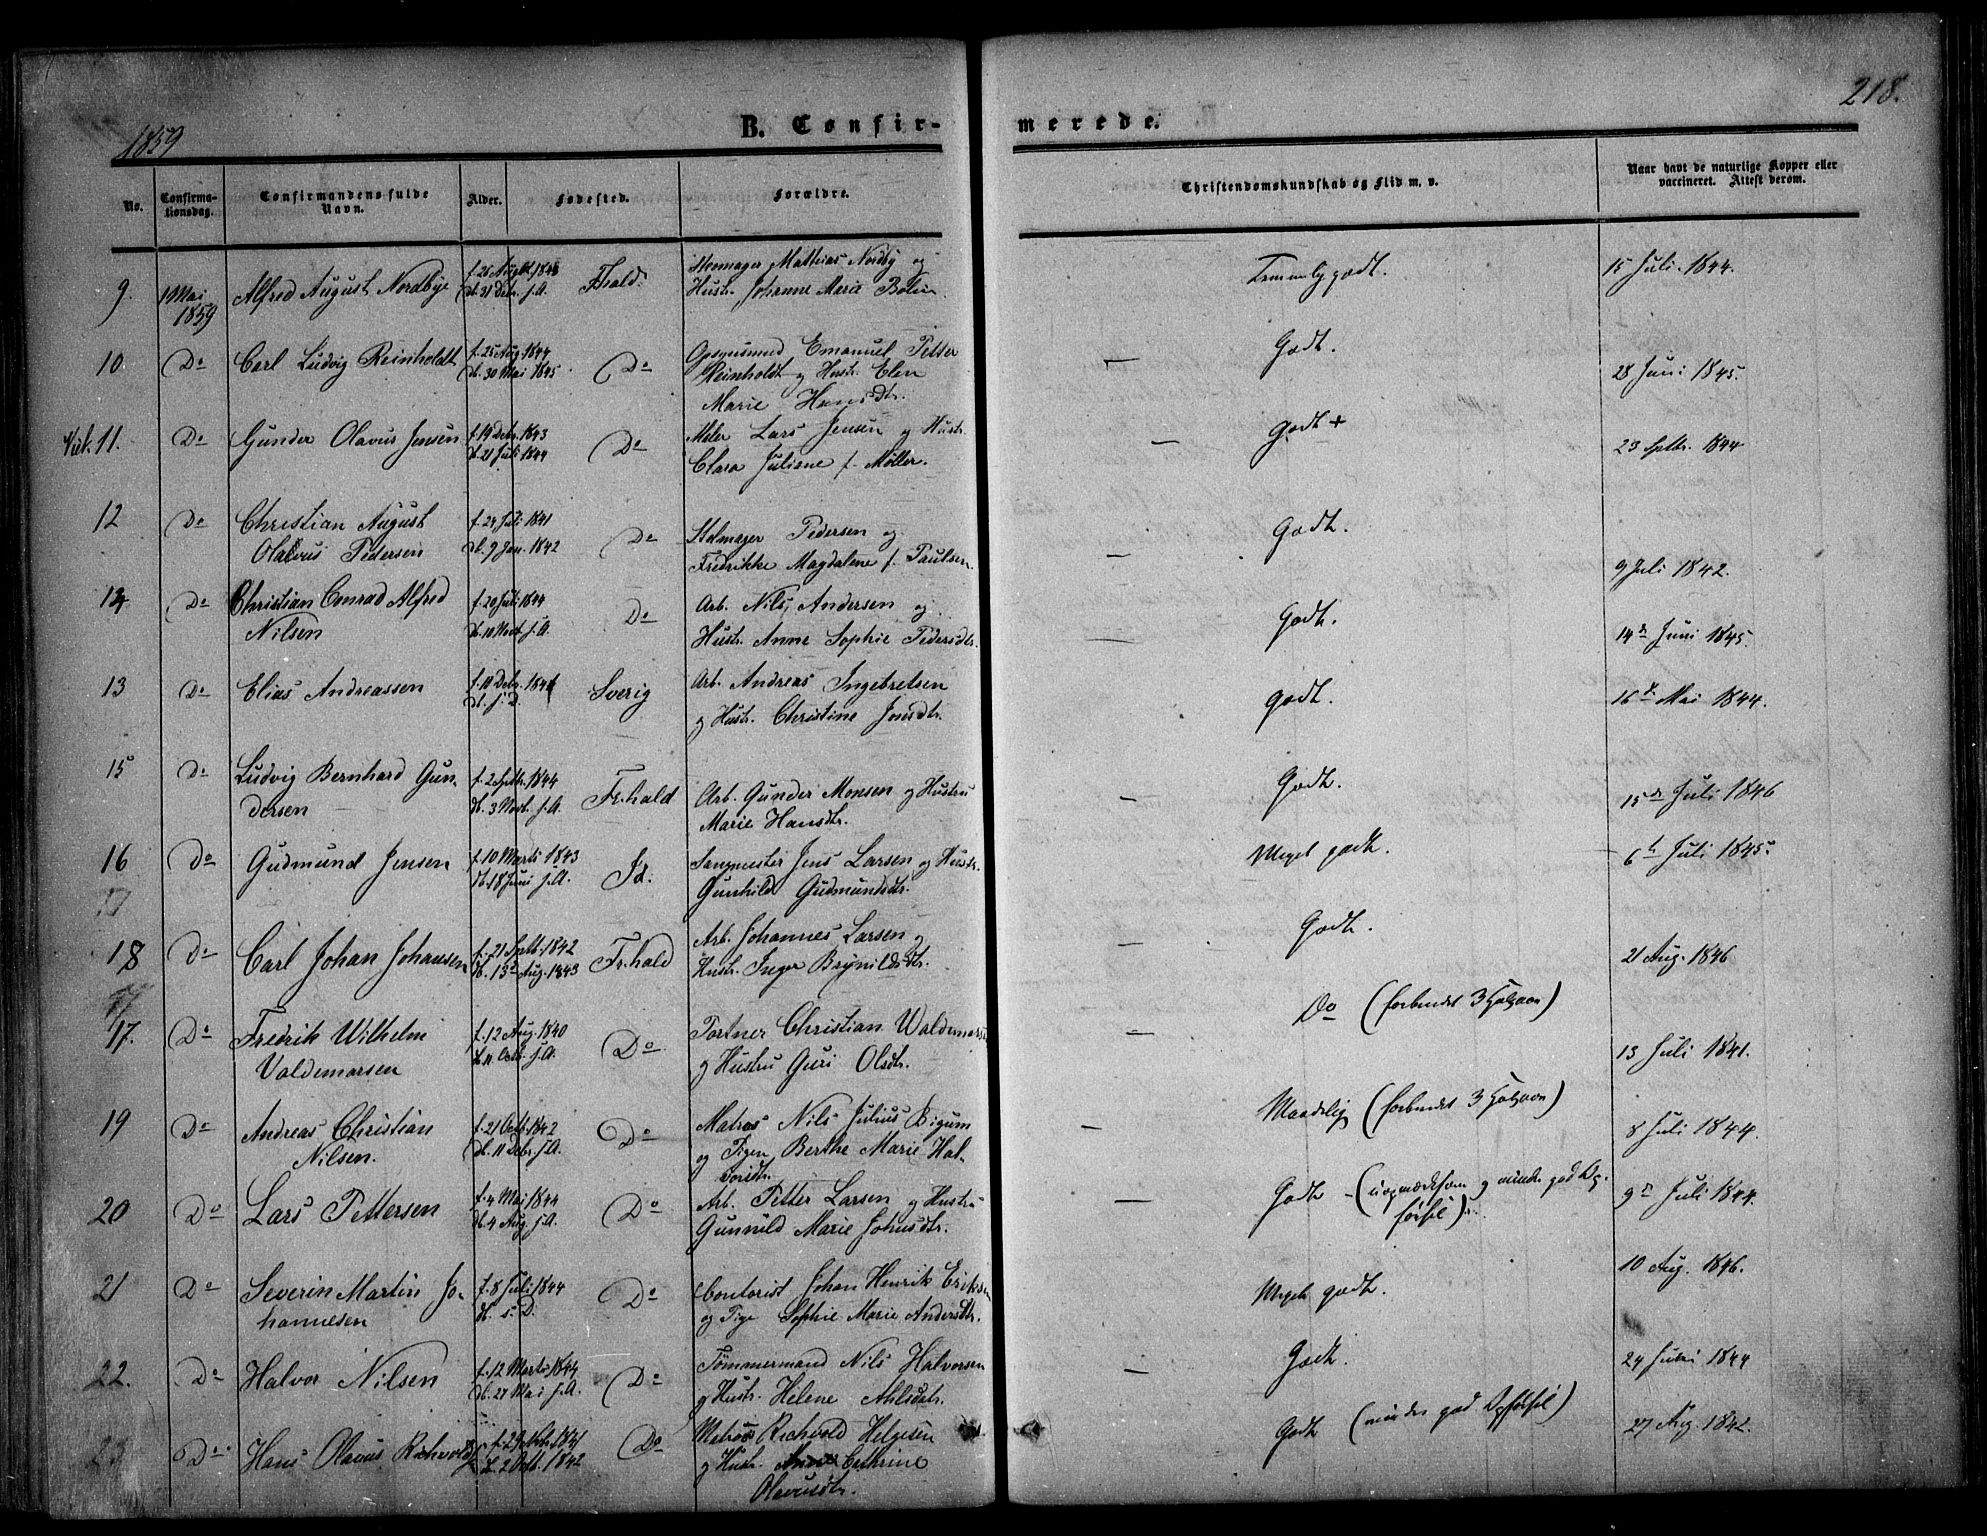 218.
1859
B. Confir-
merede.
No.
Confirma-
tionsdag.
Confirmandens fulde
Navn.
Alder.
Fødested.
Forældre.
Christendomskundskab og Flid m. v.
Naar havt de naturlige Kopper eller
vaccineret. Attest derom.
9 1 Mai 1859 Alfred August Nordbye f. 26 August db. 31 Debr. s. A. Frhald. Mathias Nordby og
Hustr. Johanne Marie Temmelig godt. 15 Juli 1844.
10. Do Carl Ludvig Reinholdt f. 25 Aug. 1844 db. 30 Mai 1845 Do Opsynsmand Emanuel Petter
Reinholdt og Hustr. Elen
Marie Hansdtr. — Godt. 28 Juni 1845.
11. Do Gunder Olavus Jensen f. 19 Debr. 1843 db. 21 Juli 1844 Do Maler Lars Jensen og Hustr.
Clara Juliane f. Møller. — Godt + 23 Septbr. 1844
12 Do Christian August
Olavus Pedersen f. 24 Juli 1841 db. 9 Jan. 1842 Do Pedersen og
Fredrikke Magdalene f. Paulsen — Godt. 9 Juli 1842.
14 Do Christian Conrad Alfred
Nilsen f. 20 Juli 1844 db. 10 Novb. s. A. Do Arb. Nils Andersen og
Hustr. Anne Sophie Pedersdtr. — Godt. 14de Juni 1845.
13 Do Elias Andreassen f. 11 Debr. Sverig Arb. Andreas Ingebretsen
og Hustr. Christine Jonsdtr. Godt. 16de Mai 1844.
15 Do Ludvig Bernhard Gun-
dersen f. 2 Septbr. 1844 db. 3 Novb. s. A. Fr.hald Arb. Gunder Monsen og Hustru
Marie Hansdtr. — Godt. 15de Juli 1846
16 Do Gudmund Jensen f. 10 Marts 1843 db. 18 Juni s. A. Id. Sangmester Jens Larsen og Hustr.
Gunhild Gudmundsdtr. Meget godt. 6te Juli 1845.
18 Do Carl Johan Johansen f. 21 Septb. 1842 db. 13de Aug. 1843 Fr.hald Arb. Johannes Larsen og
Hustr. Inger Brynildsdtr. — Godt. 21 Aug. 1846
17. Do Fredrik Wilhelm
Valdemarsen f. 12 Aug. 1840 db. 11 Octb. s. A. Do Portner Christian Waldemars
og Hustru Guri Olsdtr. — Do 13 Juli 1841.
19 Do Andreas Christian
Nilsen. f. 21 Octb. 1842 db. 11 Debr. s. A. Do Matros Nils Julius Bigum
og Pigen Berthe Marie Hal-
vorsdtr. — Maadelig 8 Juli 1844.
20 Do Lars Pettersen f. 4 Mai 1844 db. 4 Aug. s. A. Do Arb. Petter Larsen og Hustru
Gunnild Marie Johnsdtr. — Godt (uopmærksom og mindre god Op-
førsel). 9de Juli 1844.
21 Do Severin Martin Jo-
hannesen f. 8 Juli 1844 db. s. D. Do Contorist Johan Henrik Eriksen
og Pige Sophie Marie Andersdtr. Meget godt. 10 Aug. 1846.
22. Do Halvor Nilsen f. 12 Marts 1844 db. 27 Mai s. A. Do Tømmermand Nils Halvorsen
og Hustr. Helene — Godt. 24 Juni 1844
23 Do Hans Olavus Richvold db. 2 Octb. 1842 Do Matros Richvold Helgesen
og Hustr. Cathrine
Olavusdtr. Godt (mindre god Opførsel) 27 Aug. 1842.